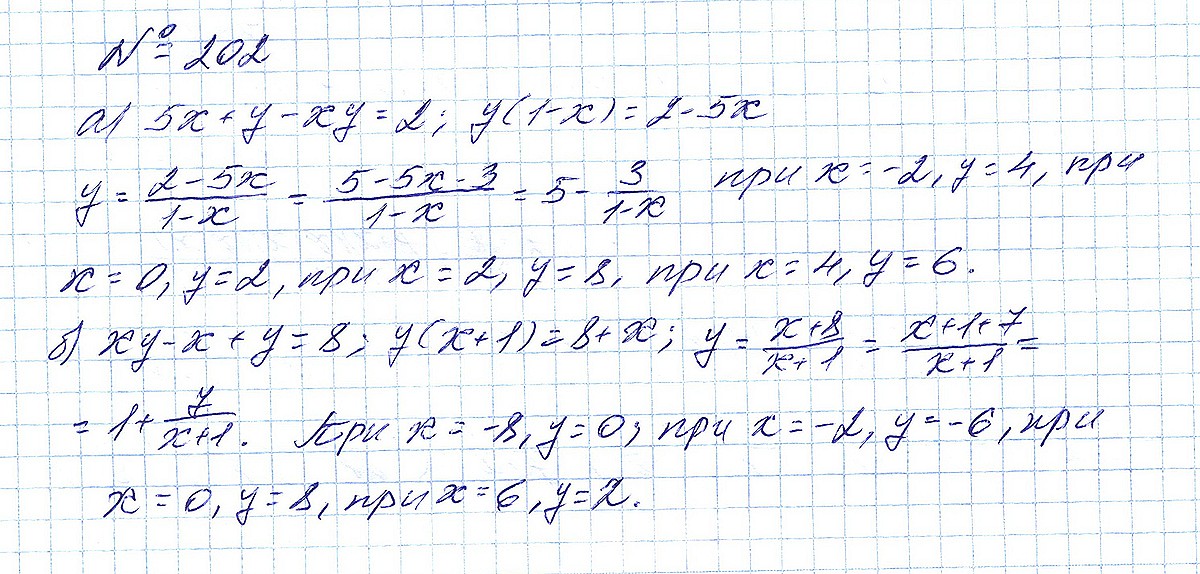 № 202
а) 5x + y - xy = 2; y(1-x) = 2-5x
y = (2-5x)/(1-x) = (5-5x-3)/(1-x) = 5 - 3/(1-x) при x = -2, y = 4, при
x = 0, y = 2, при x = 2, y = 8, при x = 4, y = 6.
б) xy - x + y = 8; y(x+1) = 8 + x; y = (x+8)/(x+1) = (x+1+7)/(x+1) =
= 1 + 7/(x+1). При x = -8, y = 0; при x = -2, y = -6, при
x = 0, y = 8, при x = 6, y = 2.